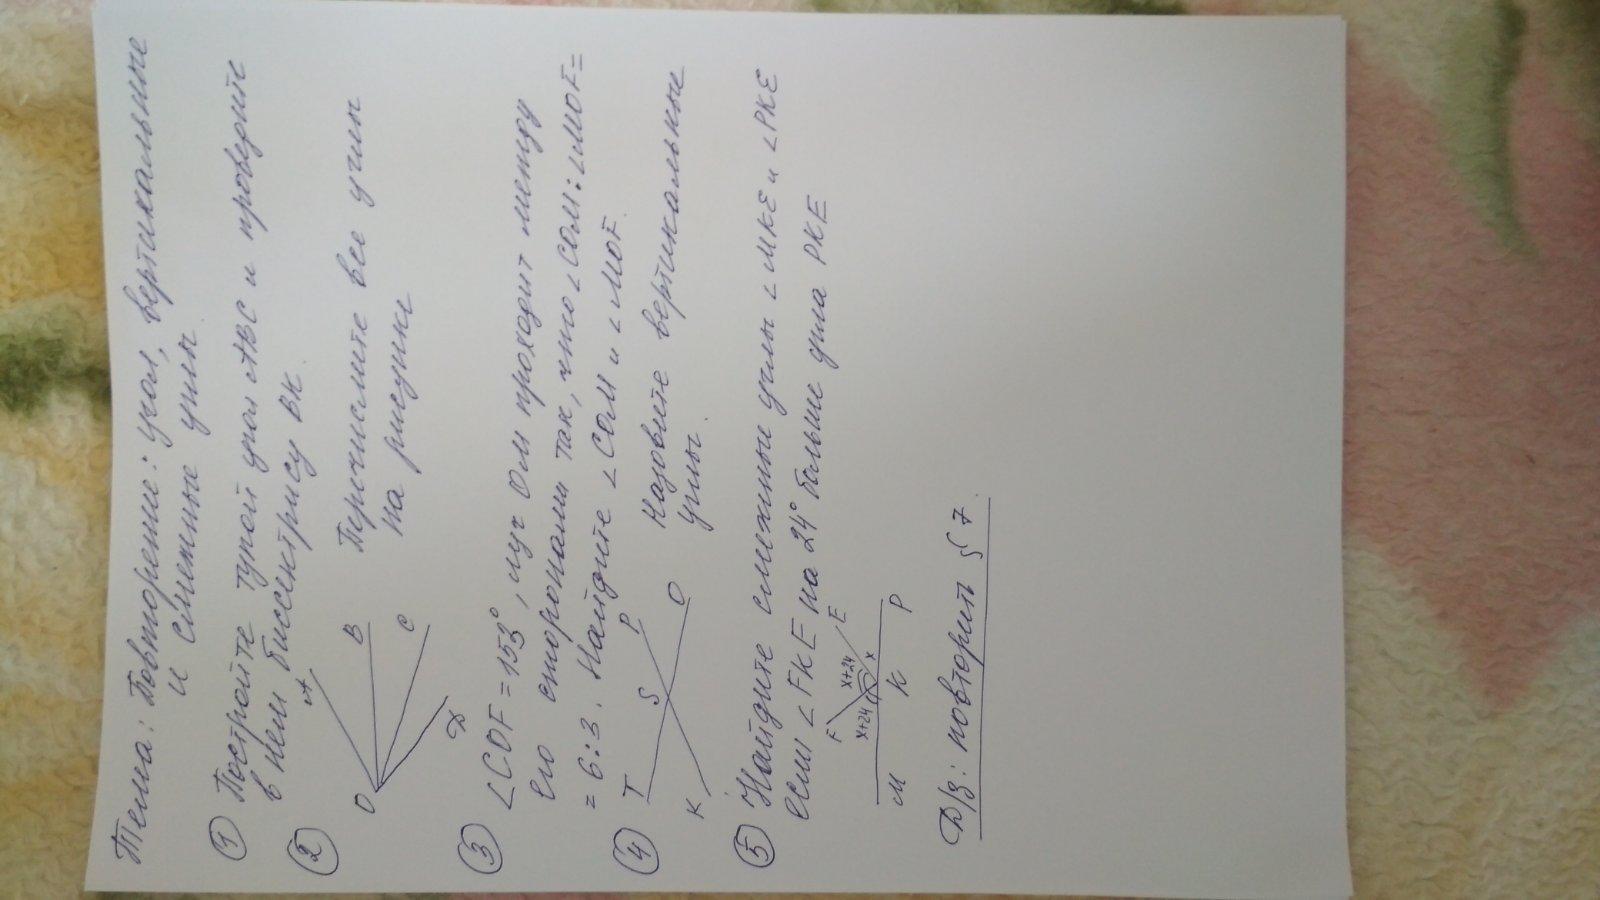 Тема: Повторение: угол, вертикальные
и смежные углы.
① Постройте тупой угол АВС и проверить
в нем биссектрису ВК.
② Перечислите все углы
на рисунке
А
В
С
D
О
③ ∠COF = 153°, луч ОМ проходит между
его сторонами так, что ∠COM : ∠MOF =
= 6:3. Найдите ∠COM и ∠MOF.
④ Назовите вертикальные
углы.
T
S
P
O
K
⑤ Найдите смежные углы ∠MKE и ∠PKE
если ∠FKE на 24° больше угла PKE
F
E
x+24
x+24
x
M
K
P
Д/З: повторить § 7.